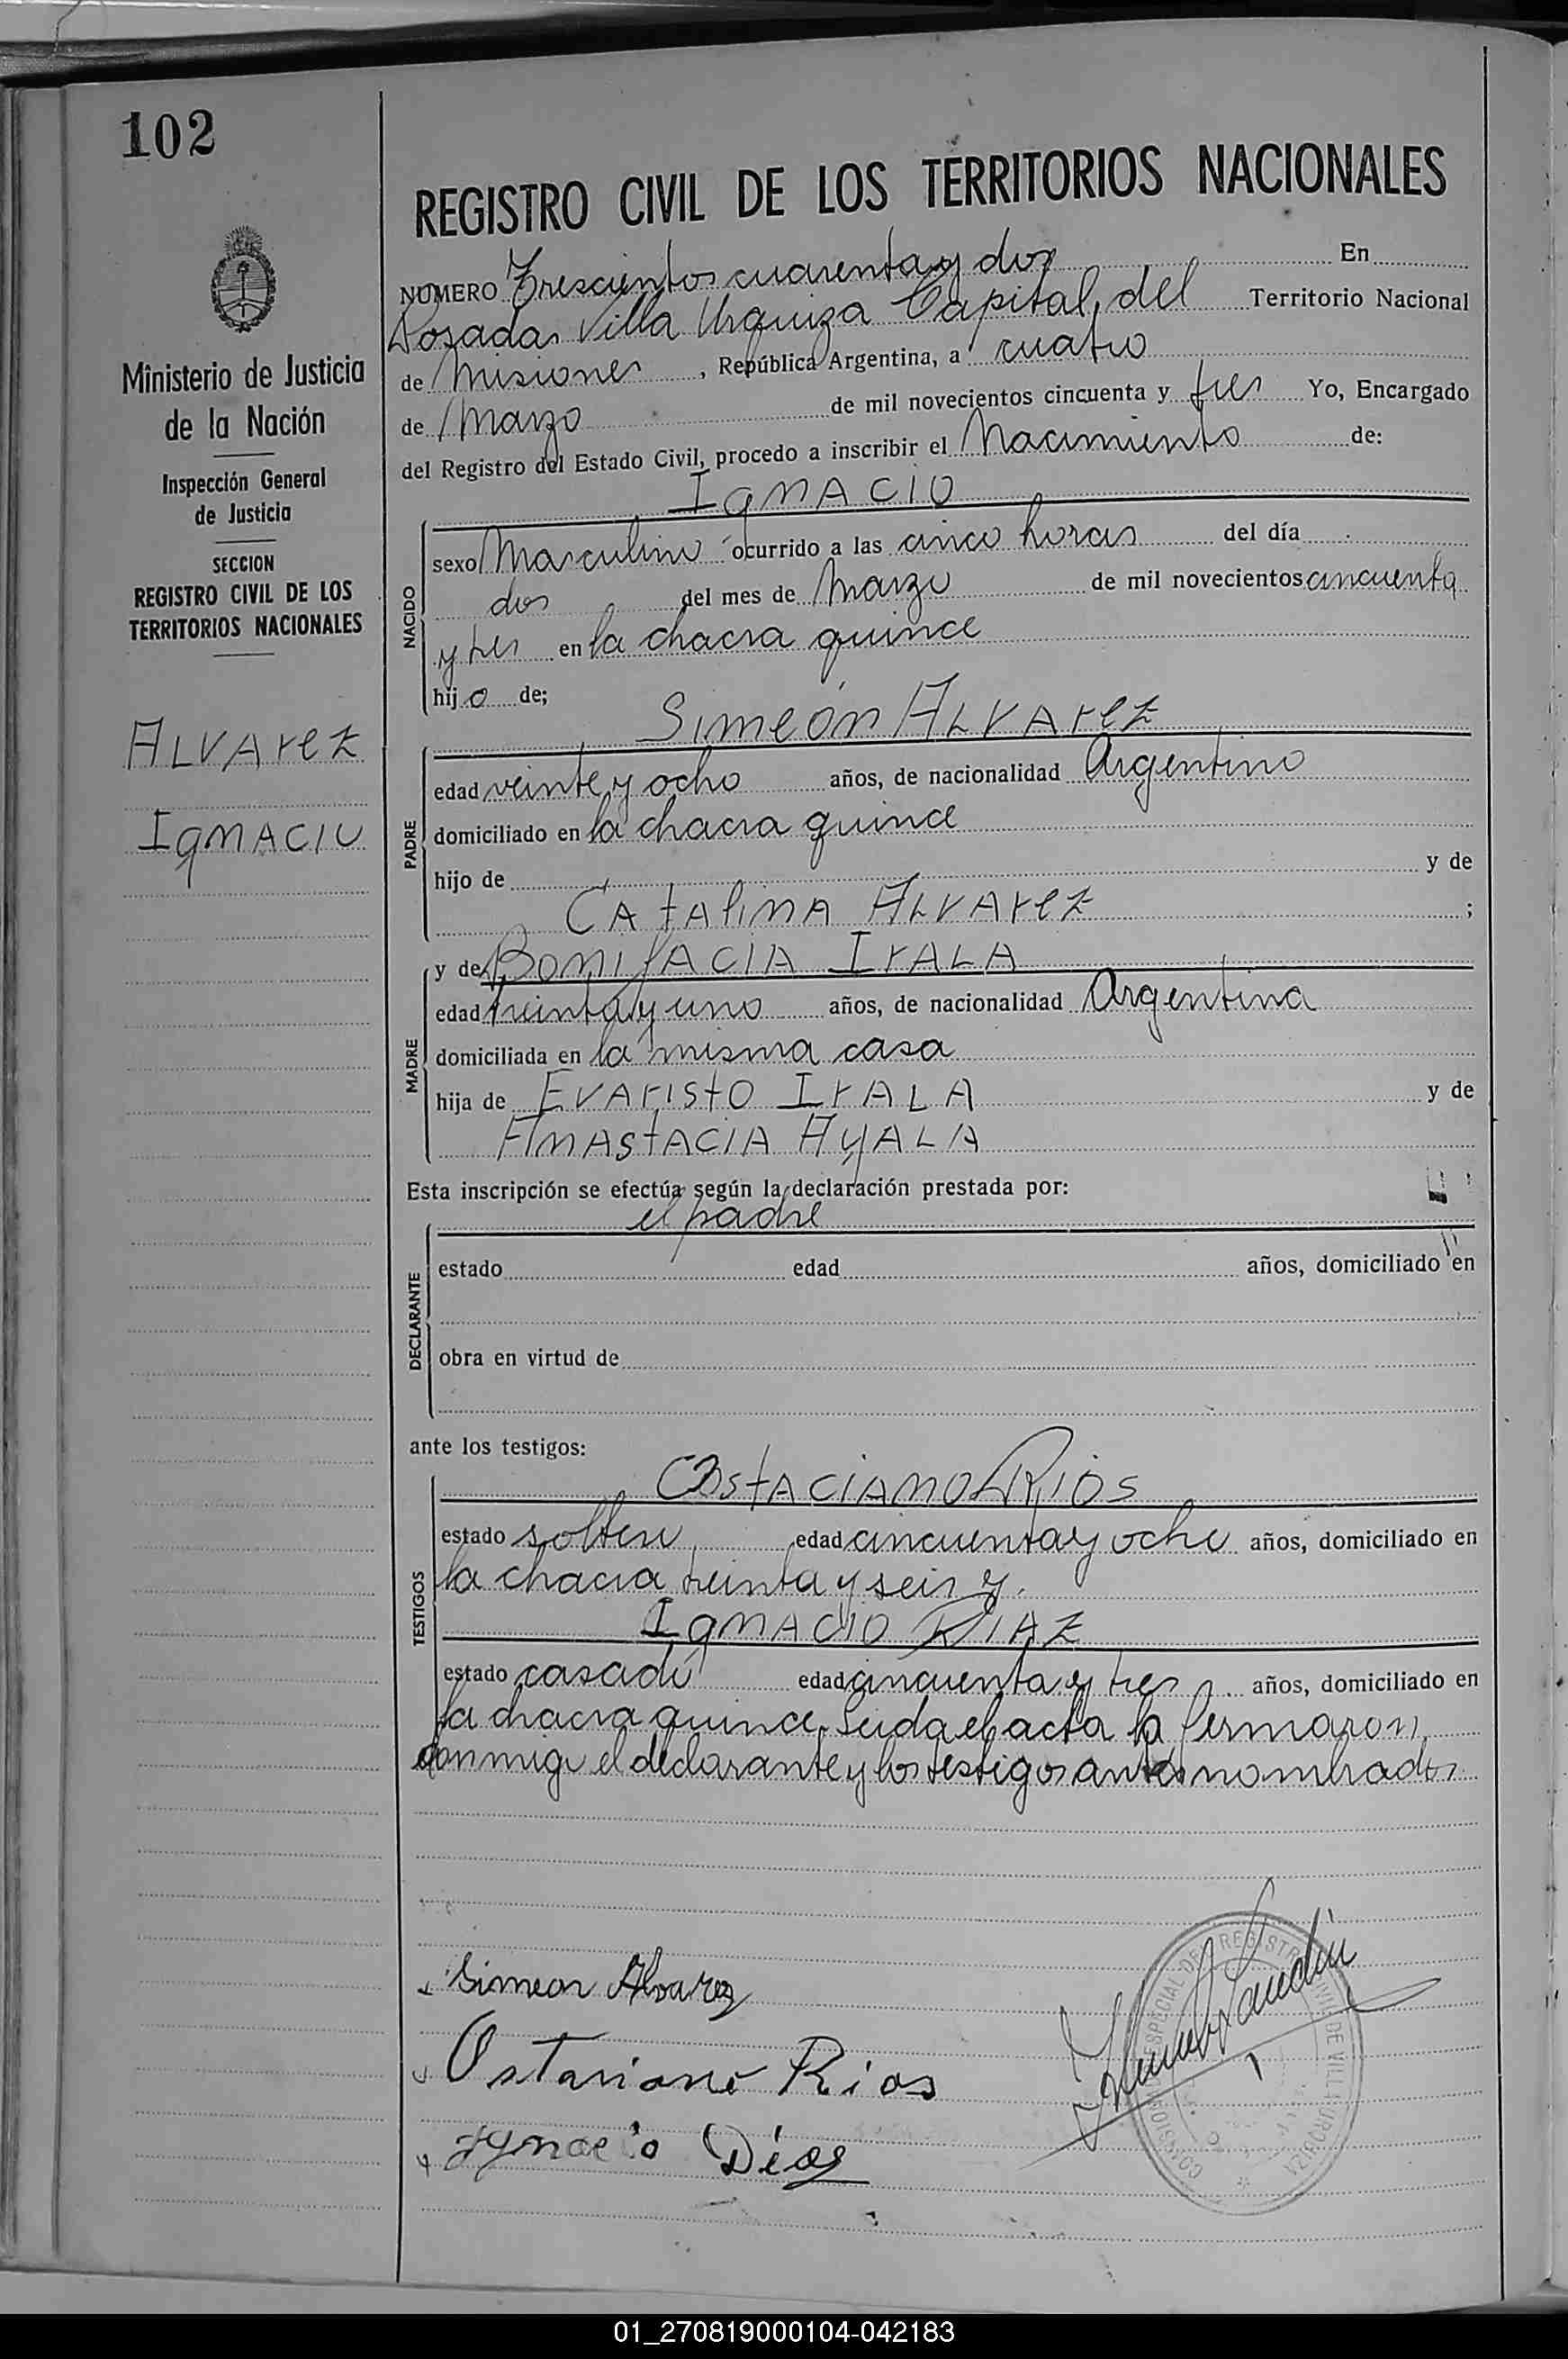 102
Ministerio de Justicia
de la Nación
Inspección General
de Justicia
SECCION
REGISTRO CIVIL DE LOS
TERRITORIOS NACIONALES
ALVArez
IgnACIO
REGISTRO CIVIL DE LOS TERRITORIOS NACIONALES
NUMERO Trescientos cuarenta y dos En
Posadas Villa Urquiza Capital del Territorio Nacional
de Misiones, República Argentina, a cuatro
de Marzo de mil novecientos cincuenta y tres Yo, Encargado
del Registro del Estado Civil, procedo a inscribir el Nacimiento de:
IgnACIO
NACIDO
sexo Masculino ocurrido a las cinco horas del día
dos del mes de Marzo de mil novecientos cincuenta
y tres en la chacra quince
hijo de;
Simeón ALVArez
PADRE
edad veinte y ocho años, de nacionalidad Argentino
domiciliado en la chacra quince
hijo de y de
CAtAlinA ALVArez ;
MADRE
y de BonifACIA IrALA
edad treinta y uno años, de nacionalidad Argentina
domiciliada en la misma casa
hija de EVAristO IrALA y de
AnAStACIA AyALA
Esta inscripción se efectúa según la declaración prestada por:
el padre
DECLARANTE
estado edad años, domiciliado en
obra en virtud de
ante los testigos:
TESTIGOS
OstACIAnO RIOS
estado soltero edad cincuenta y ocho años, domiciliado en
la chacra treinta y seis y
IgnACIO DIAz
estado casado edad cincuenta y tres años, domiciliado en
la chacra quince. Leida el acta la firmaron
conmigo el declarante y los testigos antes nombrados
Simeon Alvarez
Ostaciano Rios
Ygnacio Dias
REGISTRO CIVIL DE VILLA URQUIZA
01_270819000104-042183